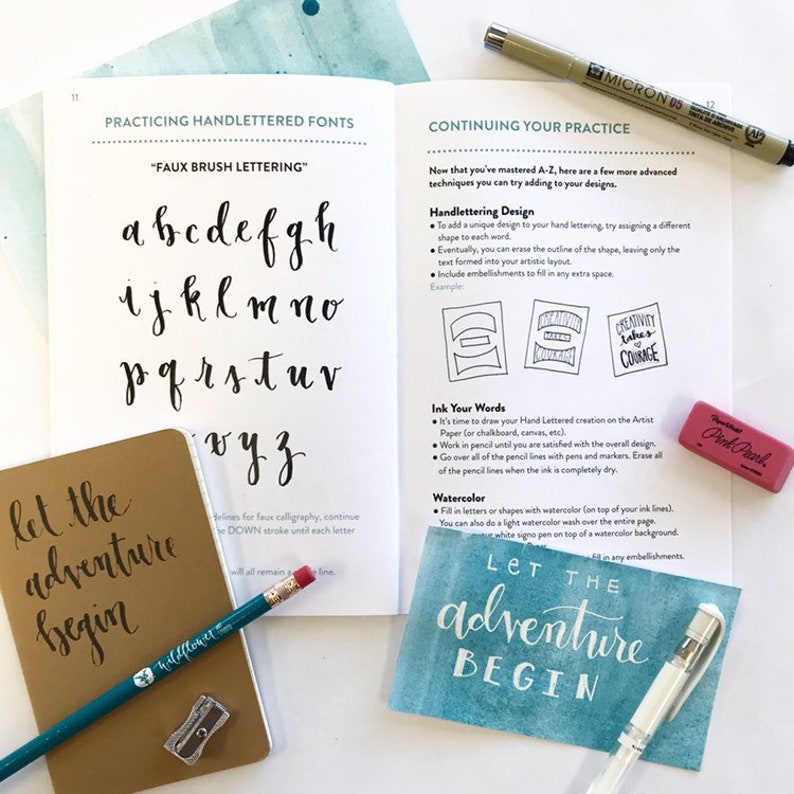 11
PRACTICING HANDLETTERED FONTS
“FAUX BRUSH LETTERING”
a b c d e f g h
i j k l m n o
p q r s t u v
x y z
delines for faux calligraphy, continue
e DOWN stroke until each letter
will all remain a line.
12
CONTINUING YOUR PRACTICE
Now that you’ve mastered A-Z, here are a few more advanced
techniques you can try adding to your designs.
Handlettering Design
● To add a unique design to your hand lettering, try assigning a different
shape to each word.
● Eventually, you can erase the outline of the shape, leaving only the
text formed into your artistic layout.
● Include embellishments to fill in any extra space.
Example:
CREATIVITY
TAKES
COURAGE
CREATIVITY
takes
COURAGE
Ink Your Words
● It’s time to draw your Hand Lettered creation on the Artist
Paper (or chalkboard, canvas, etc).
● Work in pencil until you are satisfied with the overall design.
● Go over all of the pencil lines with pens and markers. Erase all
of the pencil lines when the ink is completely dry.
Watercolor
● Fill in letters or shapes with watercolor (on top of your ink lines).
You can also do a light watercolor wash over the entire page.
your white signo pen on top of a watercolor background.
fill in any embellishments.
MICRON 05
Pink Pearl
let the
adventure
begin
wildflower
LET THE
adventure
BEGIN